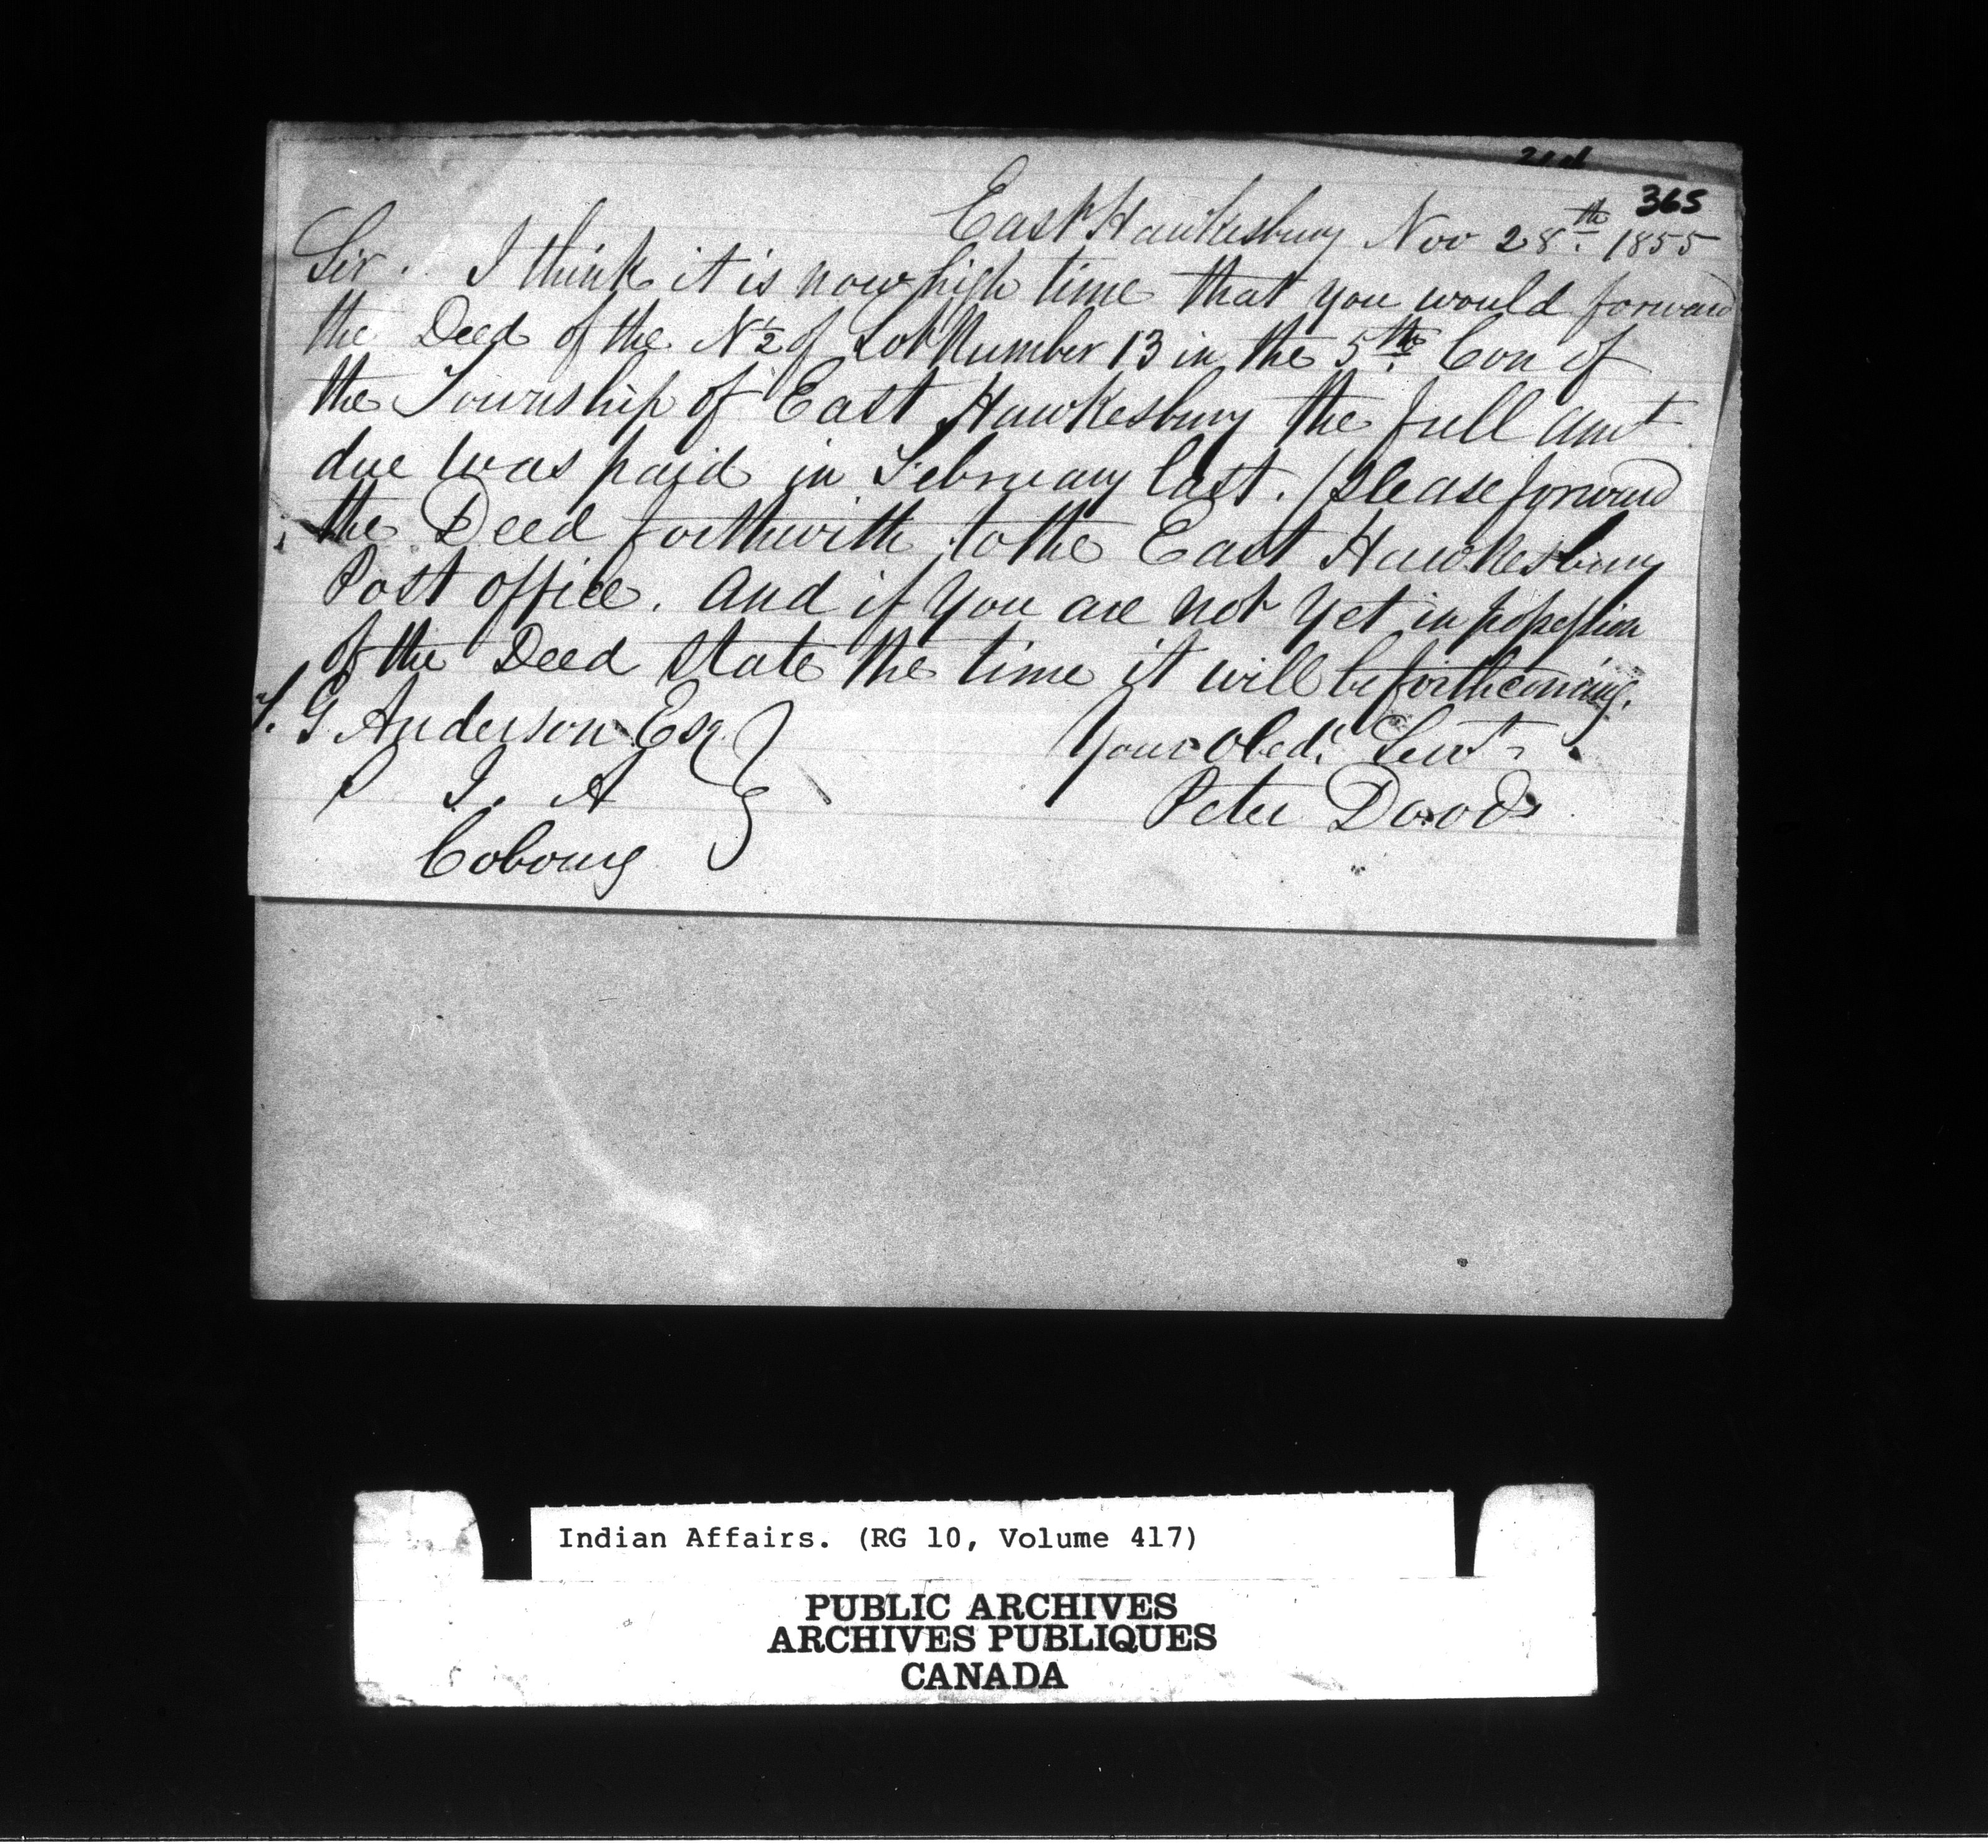 365
East Hawkesbury Nov 28th 1855
Sir. I think it is now high time that you would forward
the Deed of the N ½ of Lot Number 13 in the 5th Con of
the Township of East Hawkesbury the full amt
due was paid in February last. Please forward
the Deed forthwith to the East Hawkesbury
Post office. And if you are not yet in possession
of the Deed state the time it will be forthcoming.
T. G Anderson Esqr
Your Obedt Servt
S I. A
Peter Doods
Cobourg
Indian Affairs. (RG 10, Volume 417)
PUBLIC ARCHIVES
ARCHIVES PUBLIQUES
CANADA